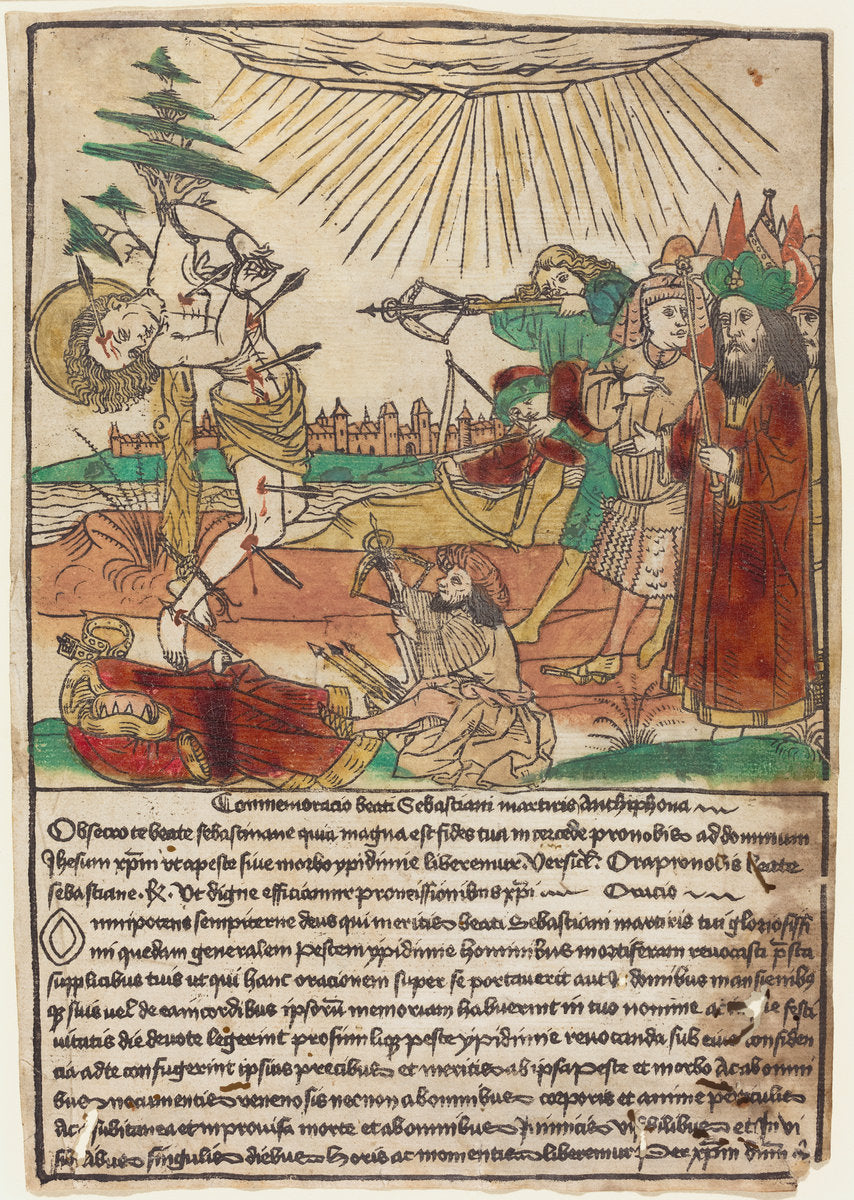 Commemoracio beati Sebastiani martiris Anthiphona
Obsecro te beate sebastinane quia magna est fides tua in tercede pro nobis ad dominum
Jhesum xp̄m vt a peste siue morbo ypidimie liberemur. Versicl. Ora pro nobis Beate
sebastiane. ℟. Ut digne efficiamur promissionibus xp̄i Oracio
Omnipotens sempiterne deus qui meritis beati Sebastiani martiris tui gloriosissi
mi quedam generalem Pestem ypidimie hominibus mortiferam reuocasti p̄sta
supplicibus tuis ut qui hanc orationem super se portauerit aut domibus mansienibꝫ
suis uel de ea in cordibus ipsorū memoriam habuerint in tuo nomine festi
uitatis die deuote legerint peste ypidimie reuocanda sub eius confiden
cia ad te confugerint ipsius precibus et meritis ab ipsa Peste et morbo Ac ab omni
bus nocumentis uenenosis necnon ab omnibus corporis et anime periculis
Ac subitanea et inprouisa morte et ab omnibus Inimicis visibilibus et In vi
sibilibus singulis diebus horis ac momentis liberemur. Per xp̄m dn̄m